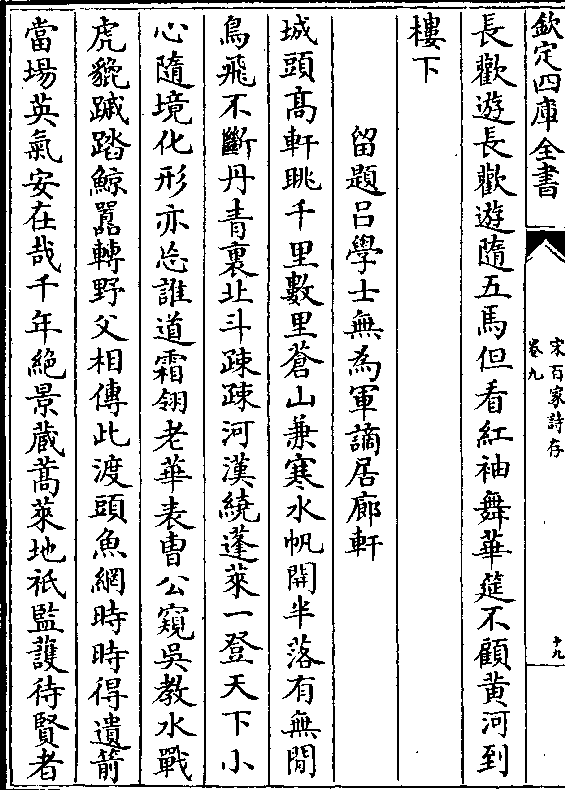 欽定四庫全書
宋百家詩存
卷九
十九
長歡遊長歡遊隨五馬但看紅袖舞華筵不顧黃河到
樓下
留題呂學士無為軍謫居廊軒
城頭髙軒眺千里數里蒼山兼寒水帆開半落有無間
鳥飛不斷丹青裏北斗疎疎河漢繞蓬萊一登天下小
心隨境化形亦忘誰道霜翎老華表曹公窺吳教水戰
虎貔蹴踏鯨鼉轉野父相傳此渡頭魚網時時得遺箭
當場英氣安在哉千年絶景蔵蒿萊地祇監護待賢者